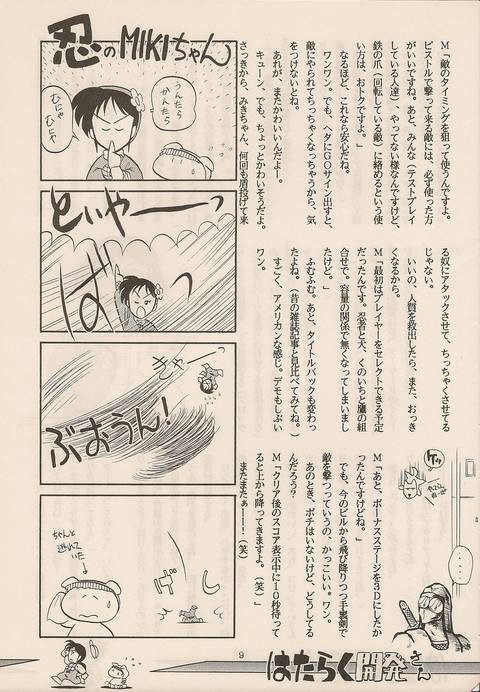 M「敵のタイミングを狙って使うんですよ。
ピストルで撃って来る敵には、必ず使った方
がいいですね。あと、みんな(テストプレイ
している人達)、やってない様なんですけど、
鉄の爪(回転している敵)に絡めるという使
い方は、おトクですよ。」
なるほど、これなら安心だね。
ワンワン。でも、ヘタにGOサイン出すと、
敵にやられてちっちゃくなっちゃうから、気
をつけないとね。
あれが、またかわいいんだよー。
キューン。でも、ちょっとかわいそうだよ。
さっきから、みきちゃん、何回も盾投げて来
る奴にアタックさせて、ちっちゃくさせてる
じゃない。
いいの、人質を救出したら、また、おっき
くなるから。
M「最初はプレイヤーをセレクトできる予定
だったんです。忍者と犬、くのいちと鷹の組
合せで。容量の関係で無くなってしまいまし
たけど。」
ふむふむ。あと、タイトルバックも変わっ
たよね。(昔の雑誌記事と見比べてみてね。)
すごく、アメリカンな感じ。デモもしぶい
ワン。
M「あと、ボーナスステージを3Dにしたか
ったんですけどね。」
でも、今のビルから飛び降りつつ手裏剣で
敵を撃つっていうの、かっこいい。ワン。
あのとき、ポチはいないけど、どうしてる
んだろう?
M「クリア後のスコア表示中に10秒待って
ると上から降ってきますよ。(笑)」
またまたぁーー!(笑)
忍のMIKIちゃん
うんたら
かんたら
むにゃ
むにゃ
といやーーっ
ば
きゃーーっ
ぶおうん!
ちゃんと
逃れて
いた
ケッ
‥‥
9
はたらく開発さん